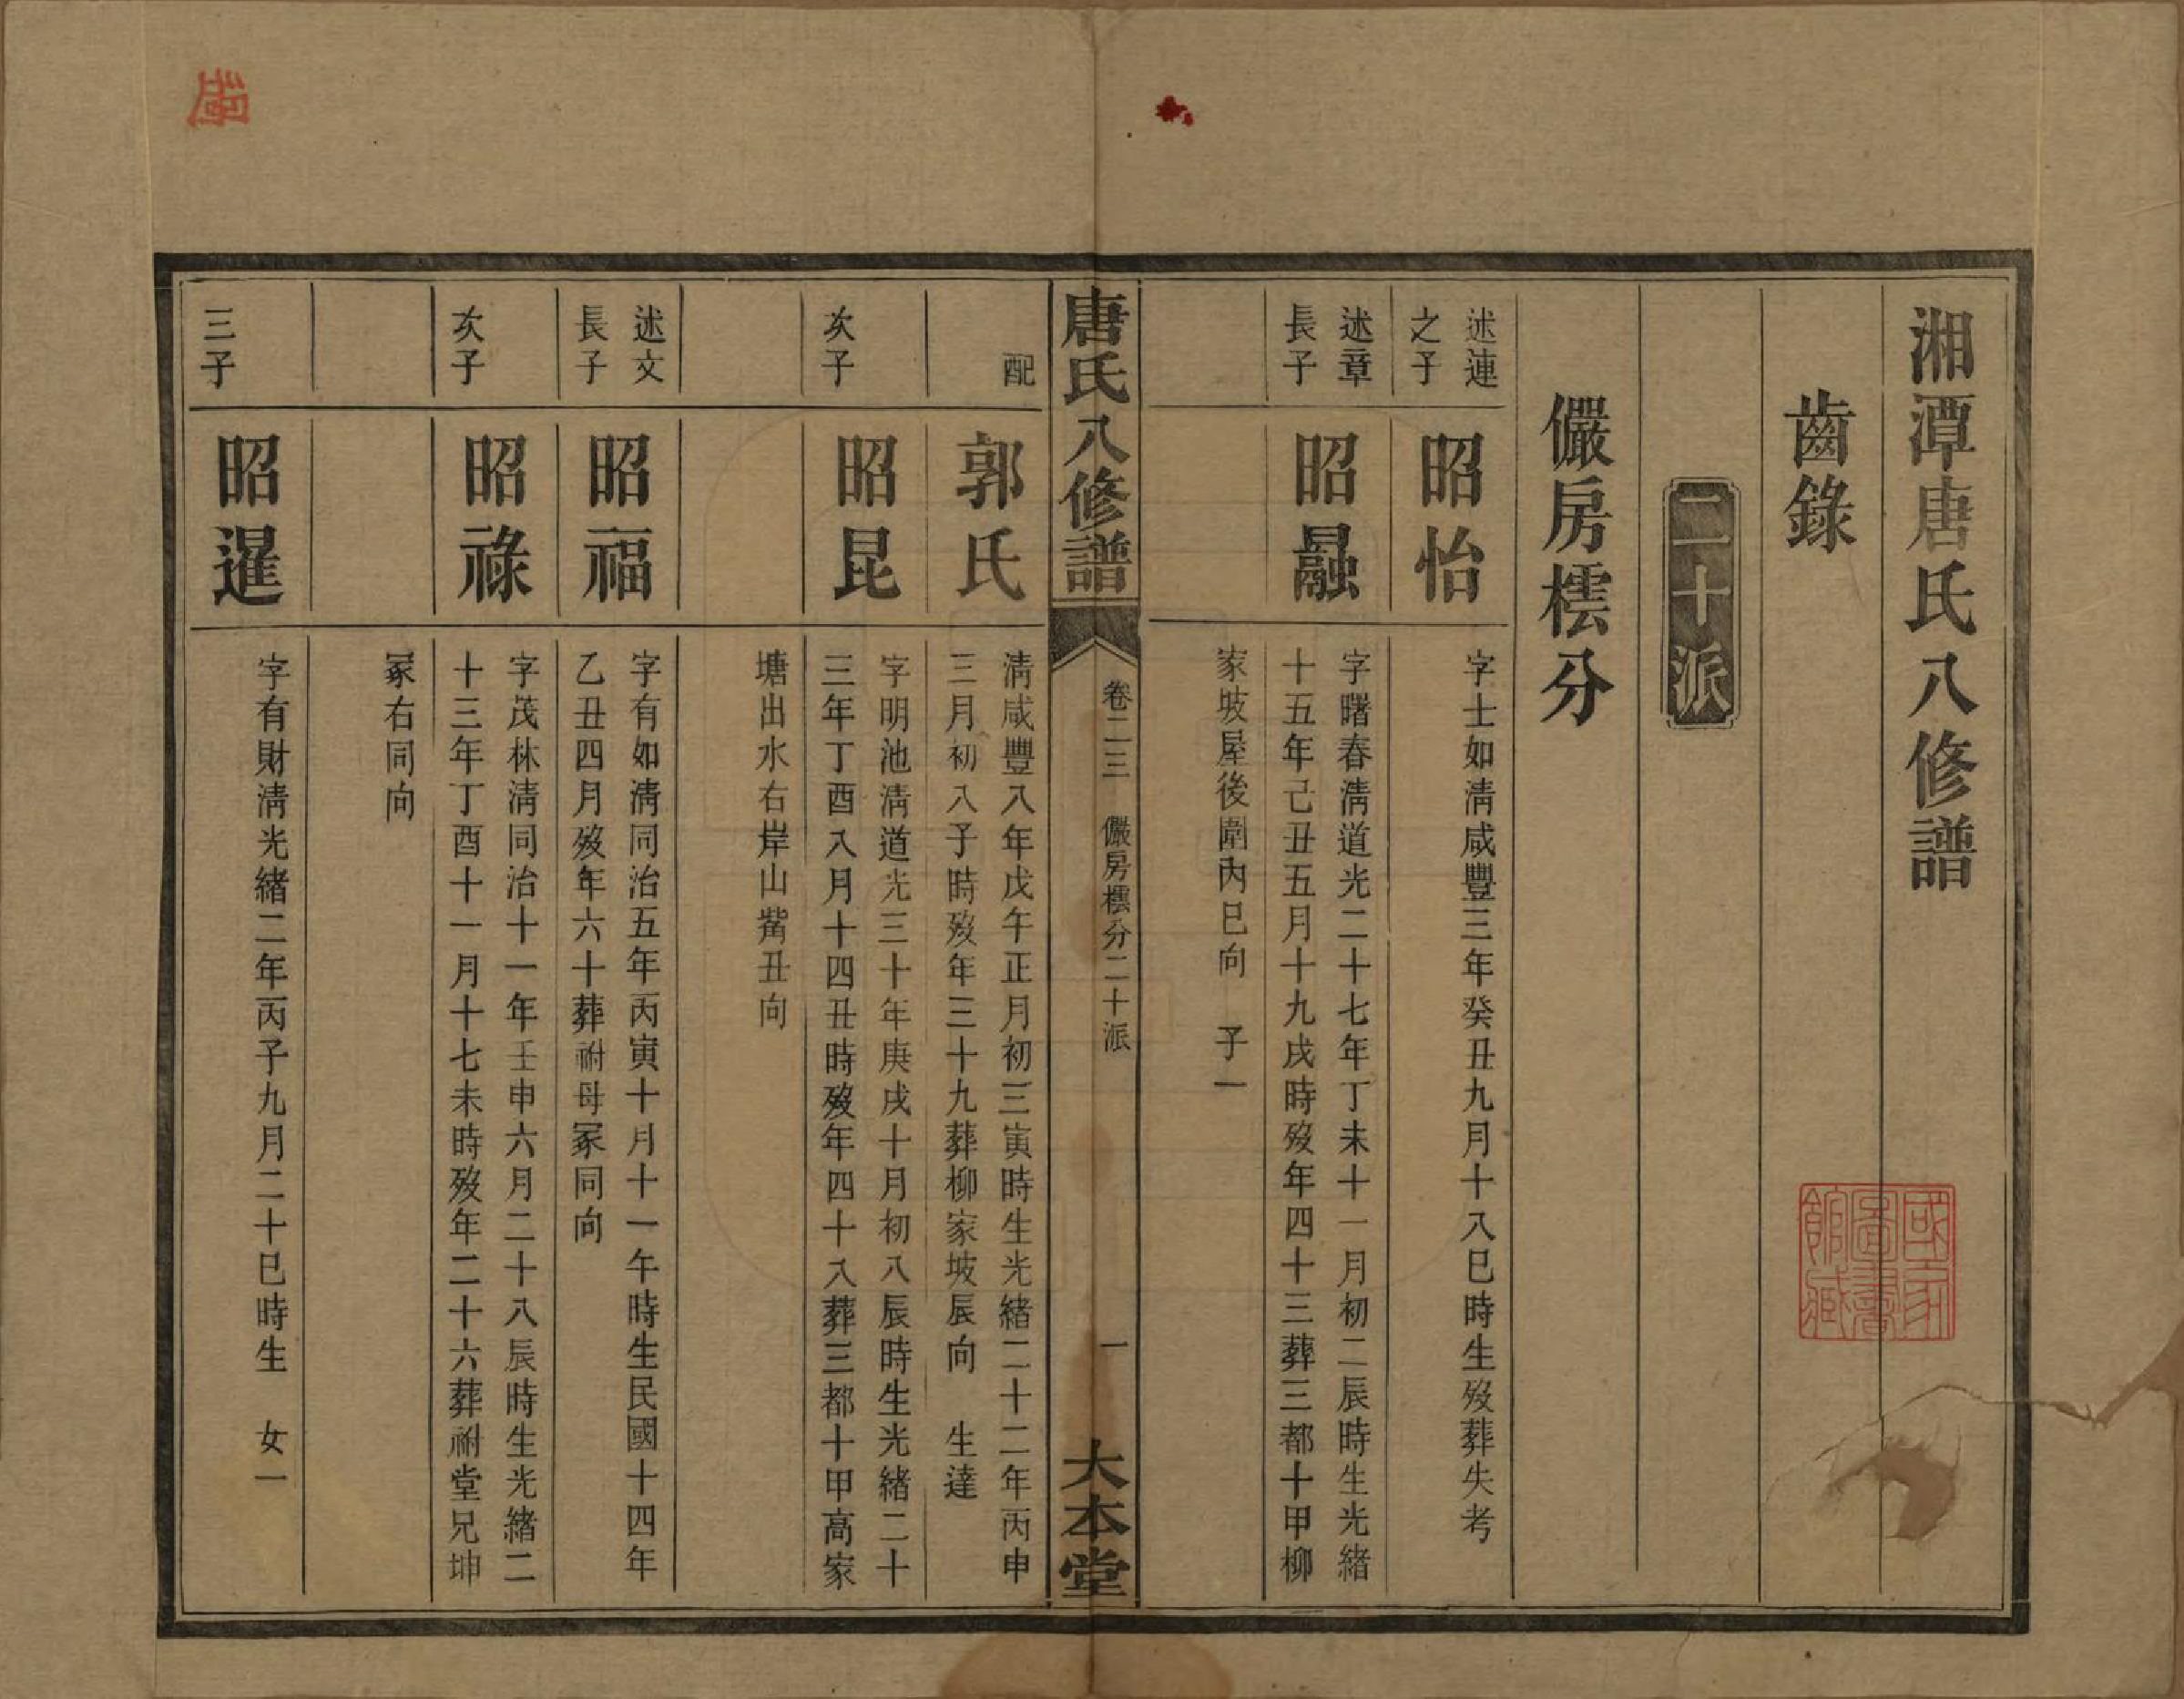 湘潭唐氏八修譜
齒錄
二十派
儼房橒分
述連
之子
昭怡
字士如淸咸豐三年癸丑九月十八巳時生歿葬失考
述章
長子
昭融
字曙春淸道光二十七年丁未十一月初二辰時生光緒
十五年己丑五月十九戌時歿年四十三葬三都十甲柳
家坡屋後圍內巳向　子一
唐氏八修譜
卷二三　儼房橒分二十派
一
大本堂
配
郭氏
淸咸豐八年戊午正月初三寅時生光緒二十二年丙申
三月初八子時歿年三十九葬柳家坡辰向　生達
次子
昭昆
字明池淸道光三十年庚戌十月初八辰時生光緒二十
三年丁酉八月十四丑時歿年四十八葬三都十甲高家
塘出水右岸山觜丑向
述文
長子
昭福
字有如淸同治五年丙寅十月十一午時生民國十四年
乙丑四月歿年六十葬祔母冢同向
次子
昭祿
字茂林淸同治十一年壬申六月二十八辰時生光緒二
十三年丁酉十一月十七未時歿年二十六葬祔堂兄坤
冢右同向
三子
昭暹
字有財淸光緒二年丙子九月二十巳時生　女一
國家
圖書
館藏